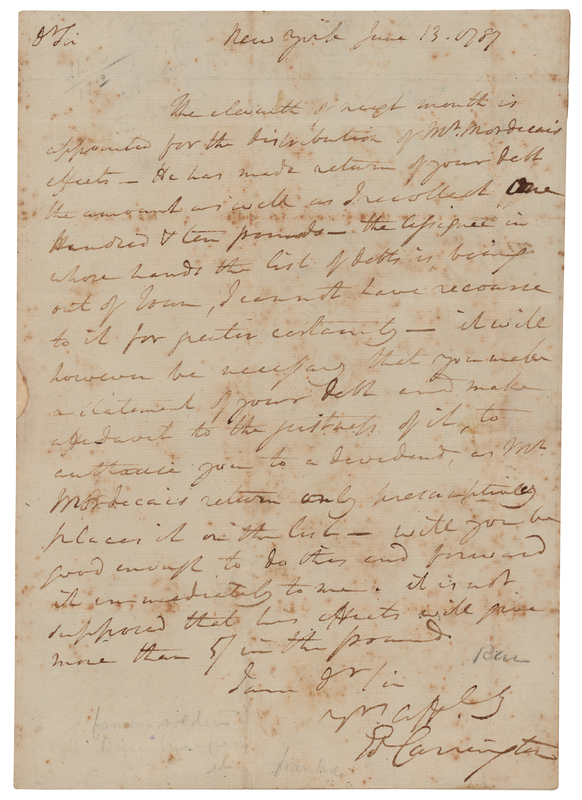 Dr Sir New York June 13. 1787
The eleventh of next month is
appointed for the distribution of Mr. Mordecais
effects – He has made return of your debt
the amount as well as I recollect One
Hundred & ten pounds – the assignee in
whose hands the list of debts is being
out of Town, I cannot have recourse
to it for greater certainty – it will
however be necessary that you make
a statement of your debt and make
affidavit to the justness of it, to
entitle you to a dividend, as Mr.
Mordecais return only presumptively
places it on the list – will you be
good enough to do this and forward
it immediately to me. it is not
supposed that his effects will give
more than 5/ in the pound.
I am Dr Sir
Ed Carrington